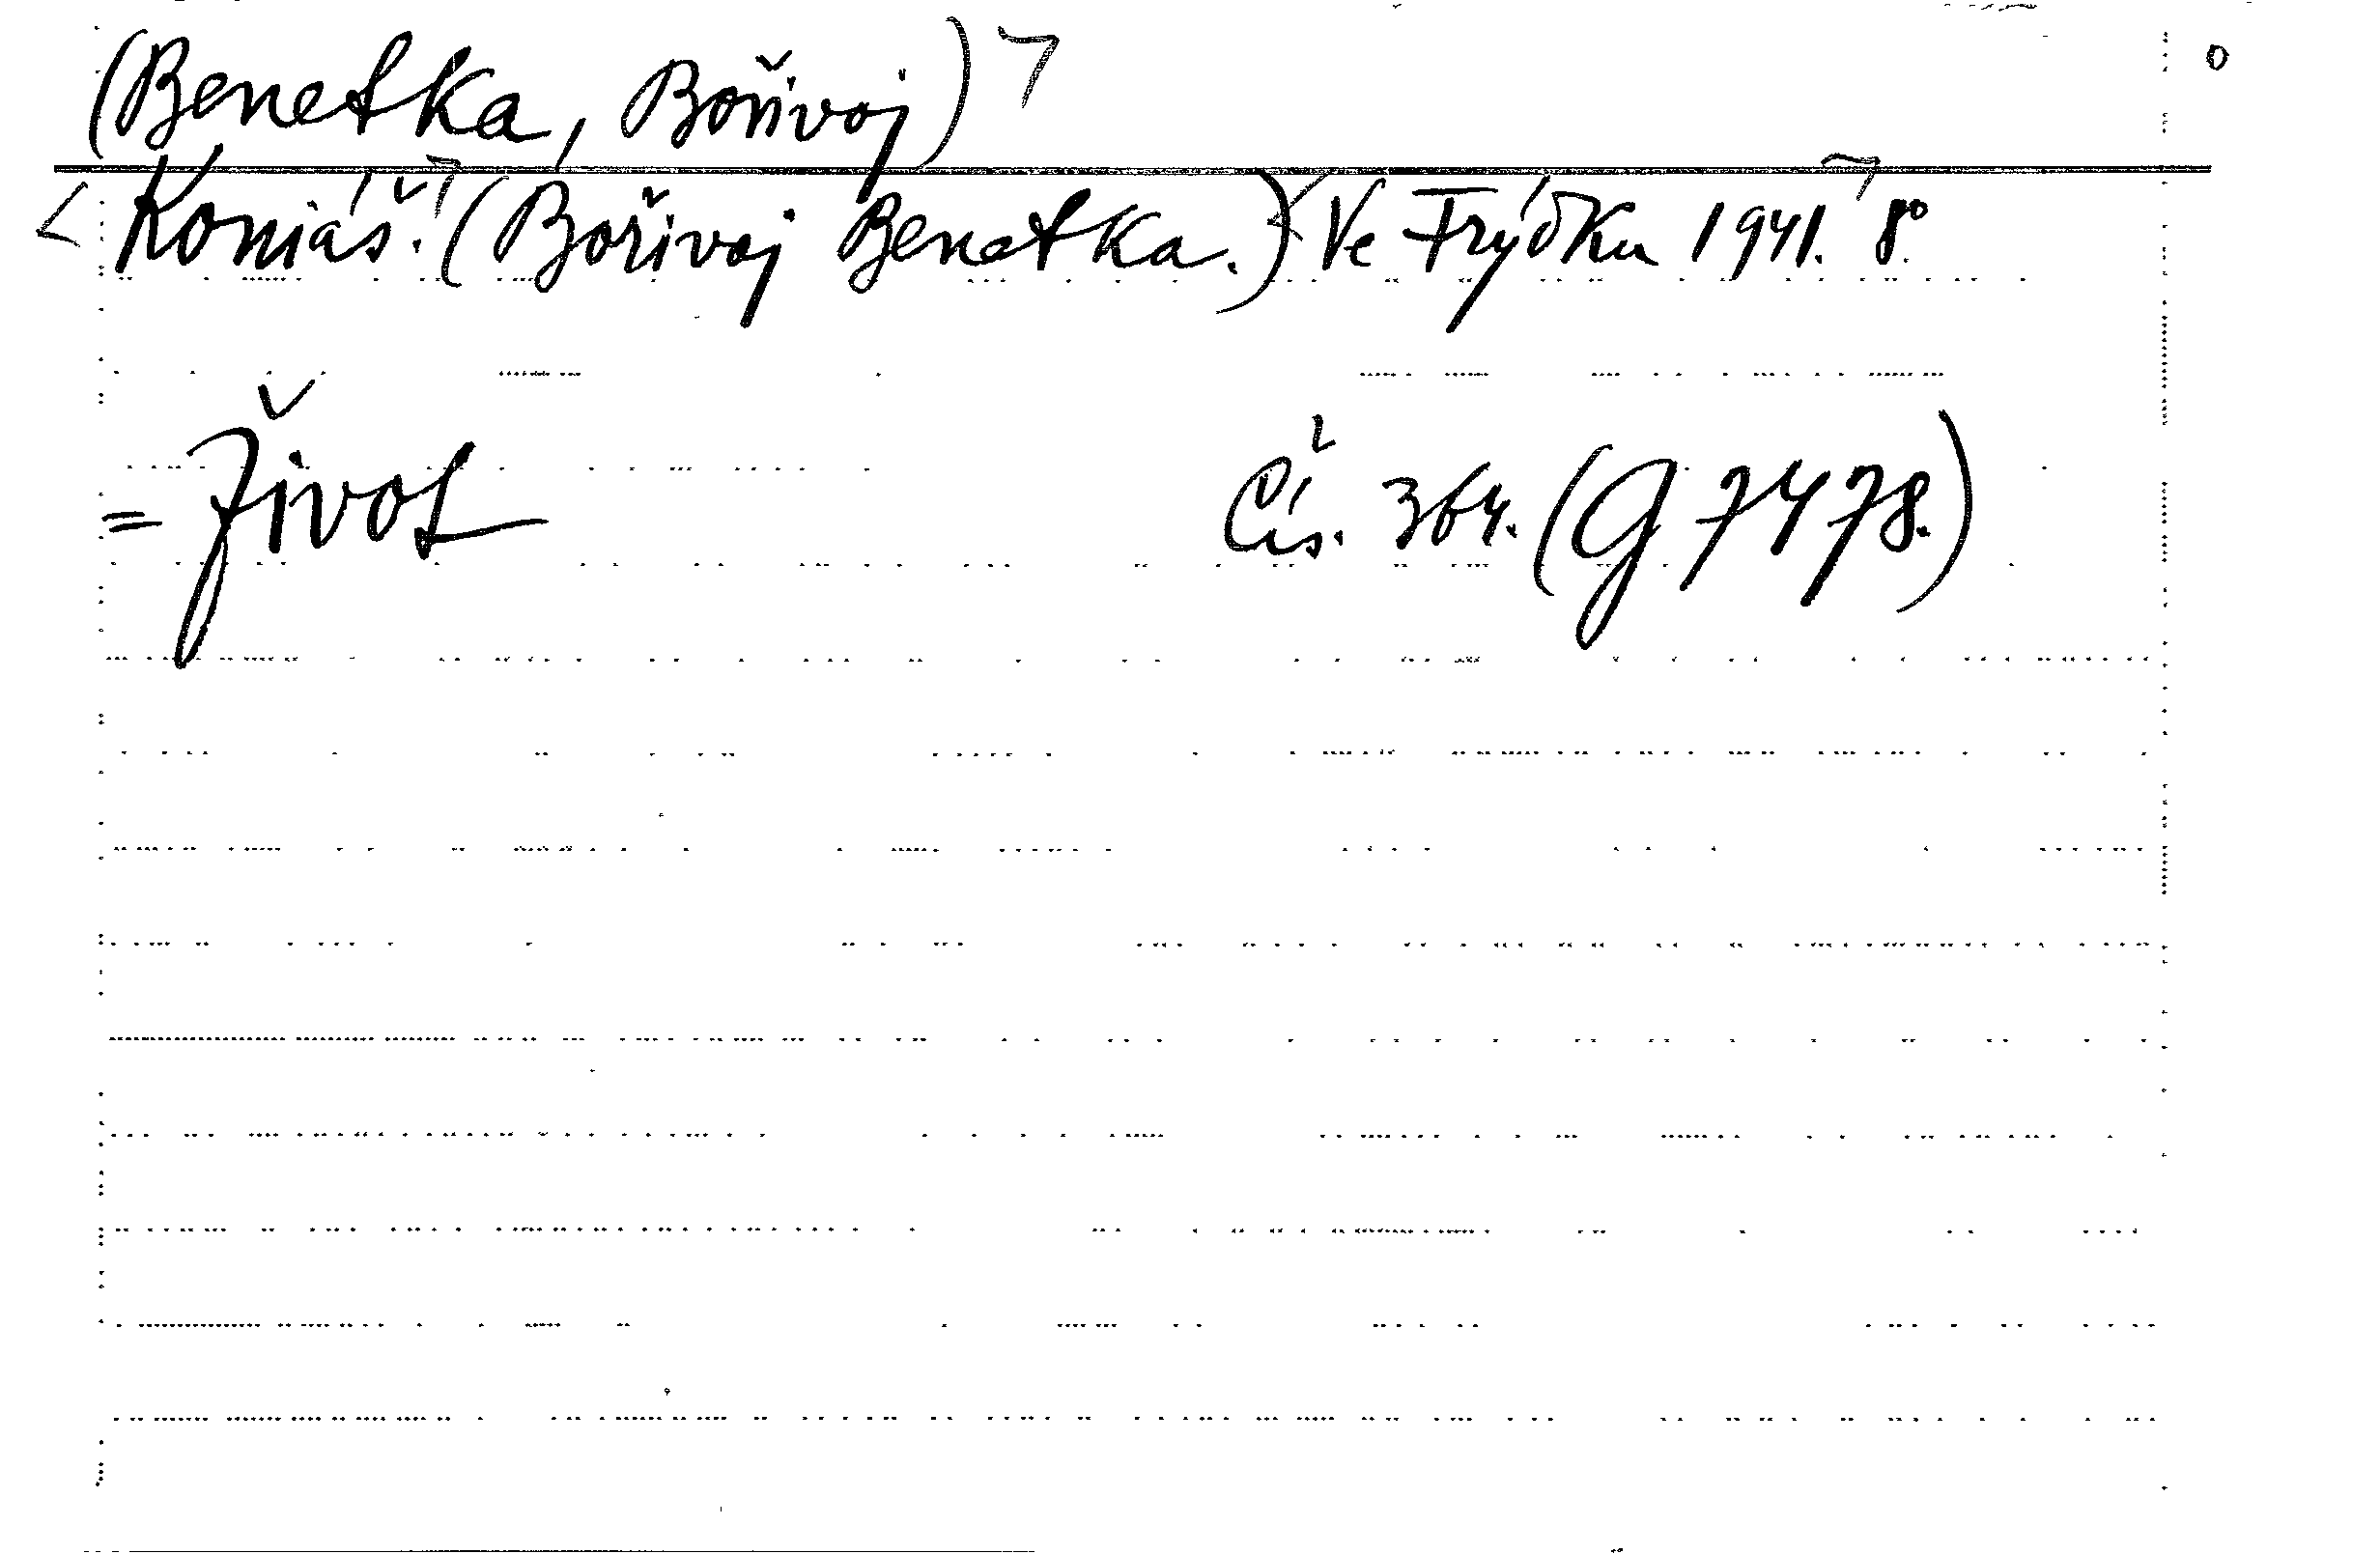 (Benetka, Bořivoj) ┐ o
< Koniáš. ┐ (Bořivoj Benetka.) < Ve Frýdku 1941. ┐ 8°.
= Život Čís. 364. (G 7478.)